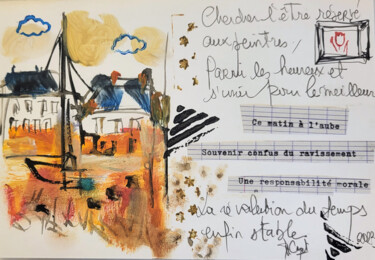 Chercher l'être réservé
aux peintres,
Parmi les heureux et
s'unir pour le meilleur
Ce matin à l'aube
Souvenir confus du ravissement
Une responsabilité morale
La révolution du temps
enfin stable